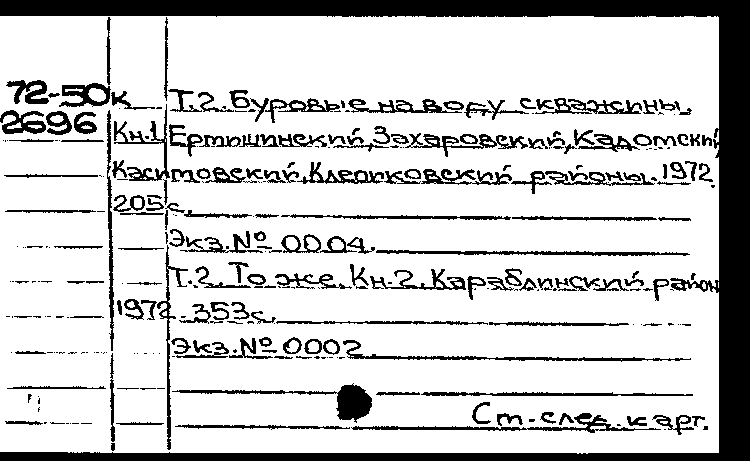 72-50к Т.2. Буровые на воду скважины.
2696 Кн.1 Ертишинский, Захаровский, Кадомский,
Касимовский, Клепиковский районы. 1972.
205с.
Экз.№ 0004.
Т.2. То же. Кн.2. Караблинский район
1972. 353с.
Экз.№ 0002.
См. след. карт.